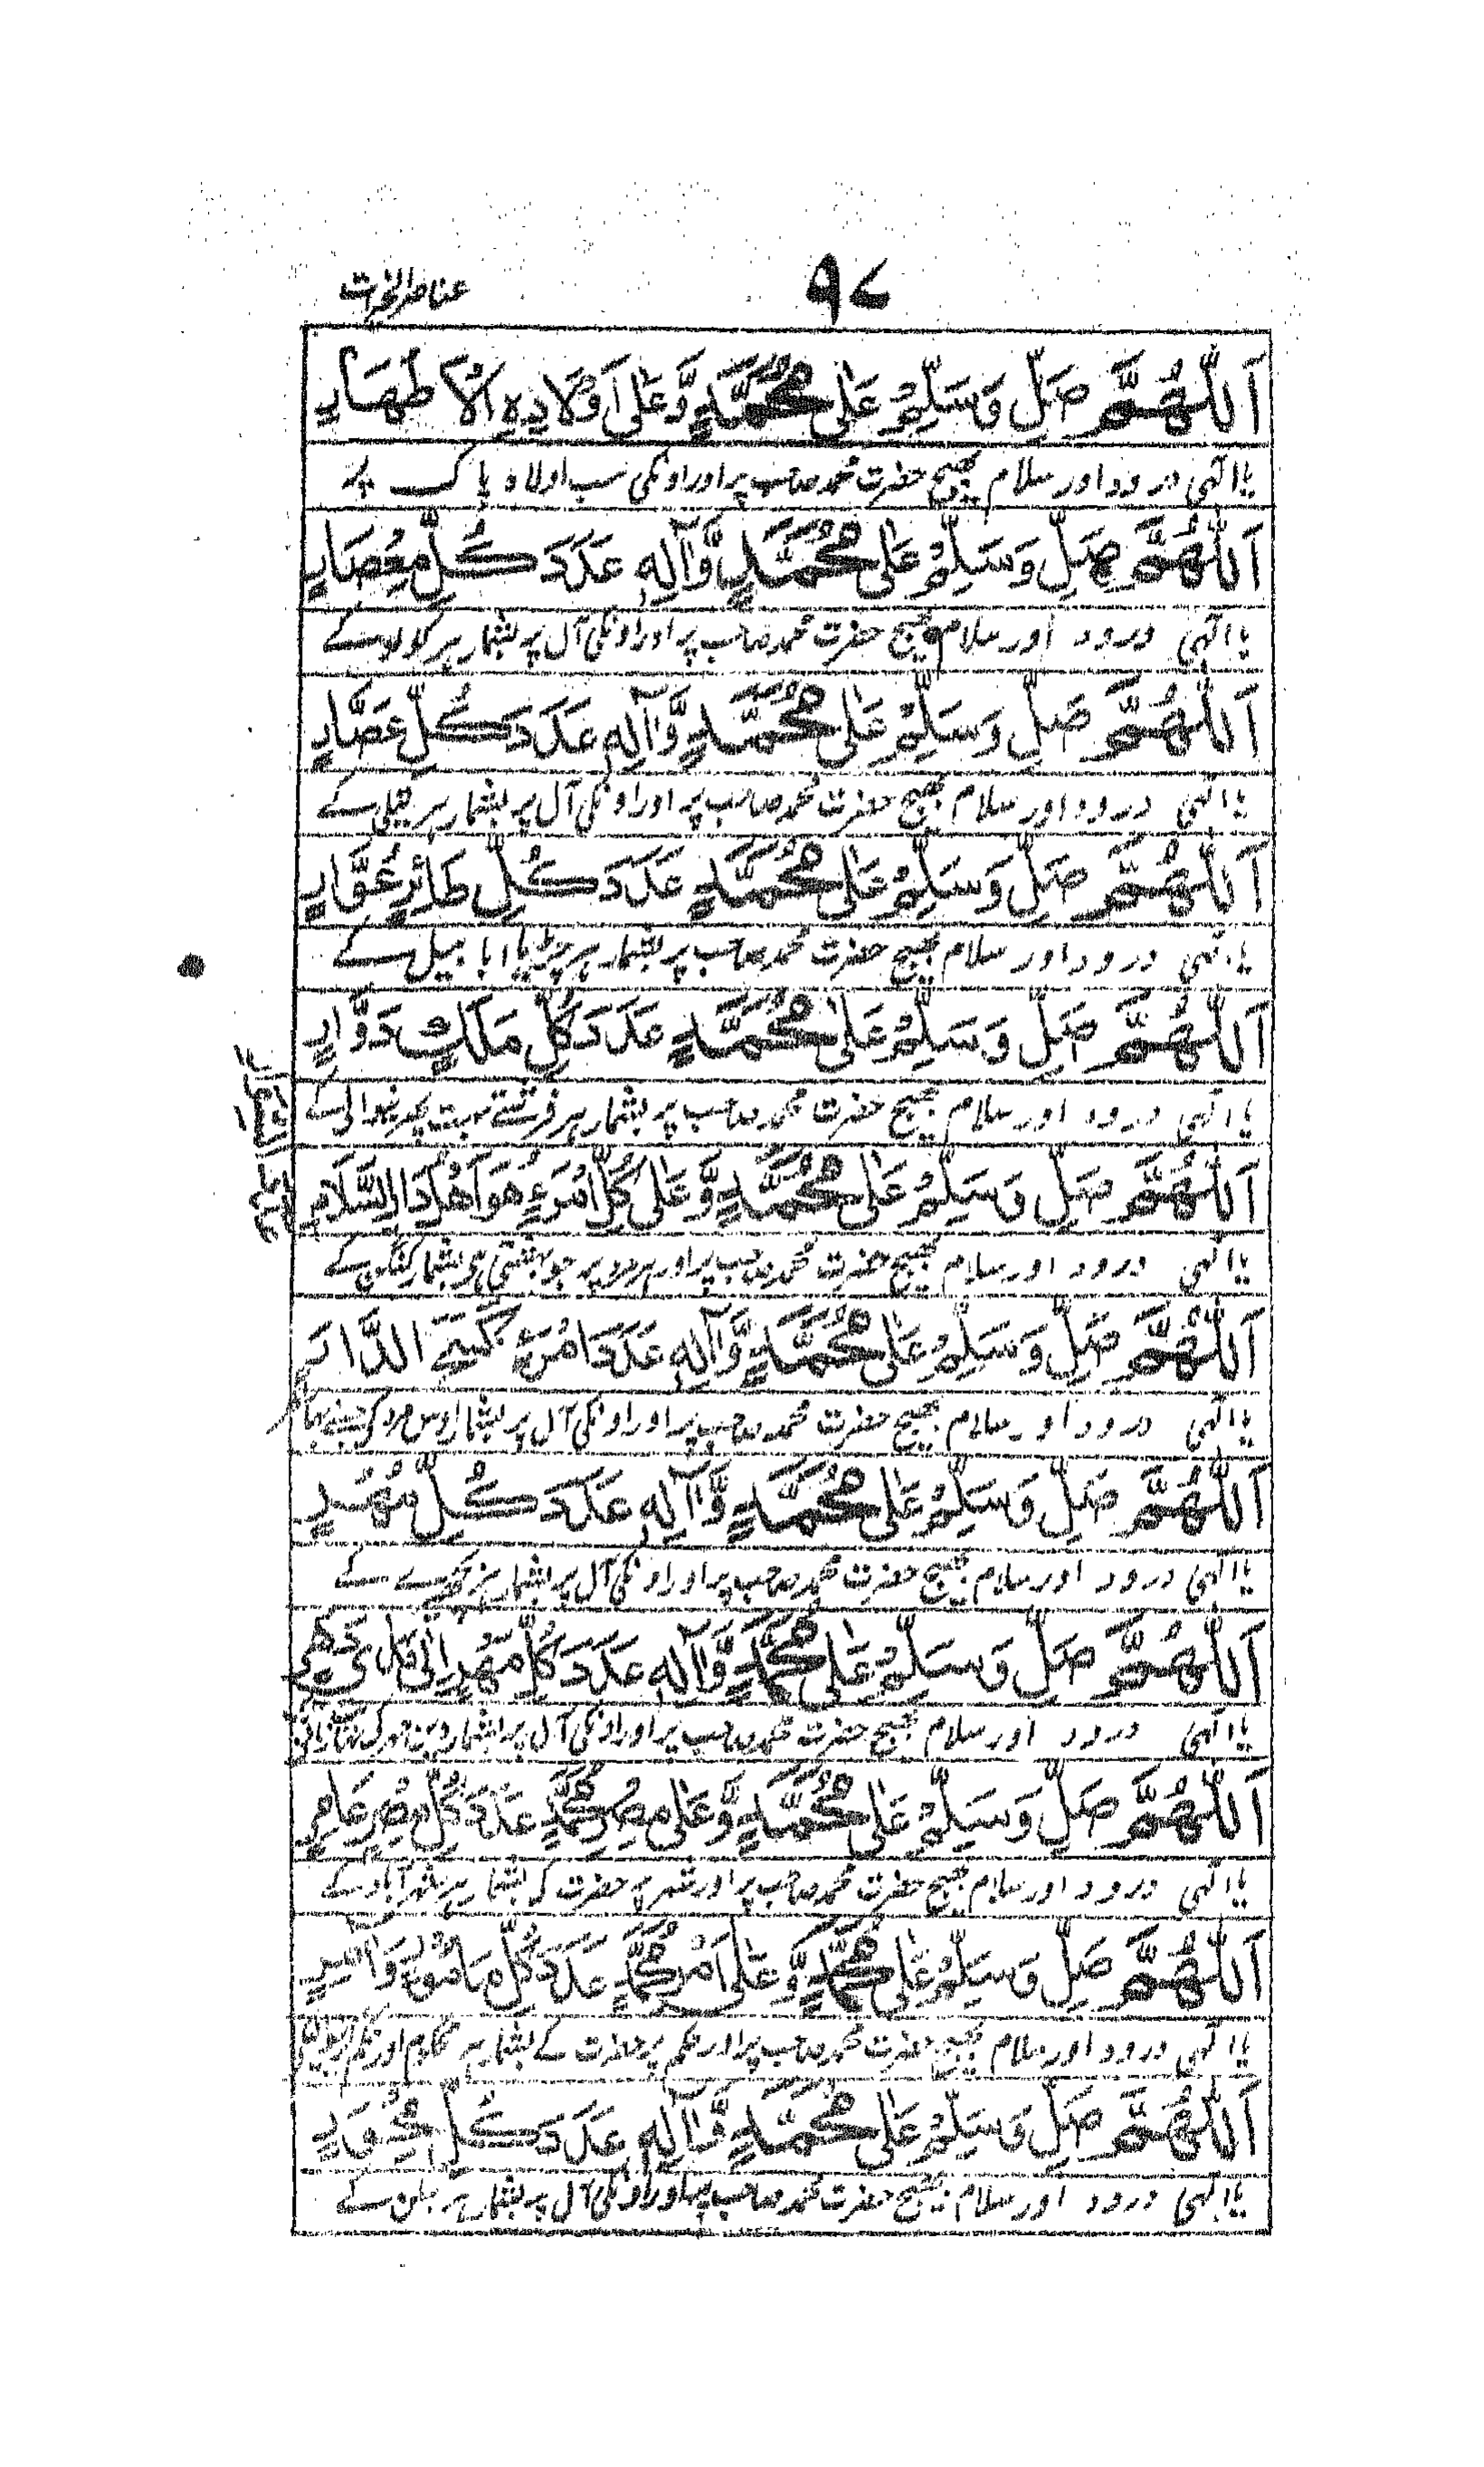 ۹۷
عناصر الخیرات
اَللّٰهُمَّ صَلِّ وَسَلِّمْ عَلٰى مُحَمَّدٍ وَّعَلٰى اَوْلَادِهِ الْاَطْهَارِ
یا الٰہی درود اور سلام بھیج حضرت محمد صاحب پر اور اونکی سب اولاد پاک پر
اَللّٰهُمَّ صَلِّ وَسَلِّمْ عَلٰى مُحَمَّدٍ وَّاٰلِهٖ عَدَدَ كُلِّ مِعْصَارٍ
یا الٰہی درود اور سلام بھیج حضرت محمد صاحب پر اور اونکی آل پر بشمار ہر کولو کے
اَللّٰهُمَّ صَلِّ وَسَلِّمْ عَلٰى مُحَمَّدٍ وَّاٰلِهٖ عَدَدَ كُلِّ عَصَّارٍ
یا الٰہی درود اور سلام بھیج حضرت محمد صاحب پر اور اونکی آل پر بشمار ہر تیلی کے
اَللّٰهُمَّ صَلِّ وَسَلِّمْ عَلٰى مُحَمَّدٍ عَدَدَ كُلِّ طَائِرٍ
یا الٰہی درود اور سلام بھیج حضرت محمد صاحب پر بشمار ہر چڑیا ابابیل کے
اَللّٰهُمَّ صَلِّ وَسَلِّمْ عَلٰى مُحَمَّدٍ عَدَدَ كُلِّ مَلَكٍ دَوَّارٍ
یا الٰہی درود اور سلام بھیج حضرت محمد صاحب پر بشمار ہر فرشتے بہت کے
اَللّٰهُمَّ صَلِّ وَسَلِّمْ عَلٰى مُحَمَّدٍ وَّعَلٰى كُلِّ امْرَءٍ هُوَ اَهْلُ دَارِ السَّلَامِ
یا الٰہی درود اور سلام بھیج حضرت محمد صاحب پر اور ہر مرد پر جو بہشتی ہو بشمار کے
اَللّٰهُمَّ صَلِّ وَسَلِّمْ عَلٰى مُحَمَّدٍ وَّاٰلِهٖ عَدَدَ امْرَءٍ
یا الٰہی درود اور سلام بھیج حضرت محمد صاحب پر اور اونکی آل پر بشمار اوس مرد کی
اَللّٰهُمَّ صَلِّ وَسَلِّمْ عَلٰى مُحَمَّدٍ وَّاٰلِهٖ عَدَدَ كُلِّ مُهْرٍ
یا الٰہی درود اور سلام بھیج حضرت محمد صاحب پر اور اونکی آل پر بشمار ہر بچھیرے کے
اَللّٰهُمَّ صَلِّ وَسَلِّمْ عَلٰى مُحَمَّدٍ وَّاٰلِهٖ عَدَدَ كُلِّ مَهْرٍ
یا الٰہی درود اور سلام بھیج حضرت محمد صاحب پر اور اونکی آل پر بشمار
اَللّٰهُمَّ صَلِّ وَسَلِّمْ عَلٰى مُحَمَّدٍ وَّعَلٰى مِصْرِ مُحَمَّدٍ عَدَدَ كُلِّ مِصْرٍ عَامِرٍ
یا الٰہی درود اور سلام بھیج حضرت محمد صاحب پر اور شہر پر حضرت کے بشمار ہر شہر آباد کے
اَللّٰهُمَّ صَلِّ وَسَلِّمْ عَلٰى مُحَمَّدٍ وَّعَلٰى اَمْرِ مُحَمَّدٍ عَدَدَ كُلِّ مَامُوْرٍ وَاٰمِرٍ
یا الٰہی درود اور سلام بھیج حضرت محمد صاحب پر اور حکم پر حضرت کے بشمار ہر محکوم اور
اَللّٰهُمَّ صَلِّ وَسَلِّمْ عَلٰى مُحَمَّدٍ وَّاٰلِهٖ عَدَدَ كُلِّ مِحْوَرٍ
یا الٰہی درود اور سلام بھیج حضرت محمد صاحب پر اور اونکی آل پر بشمار ہر بیلن کے